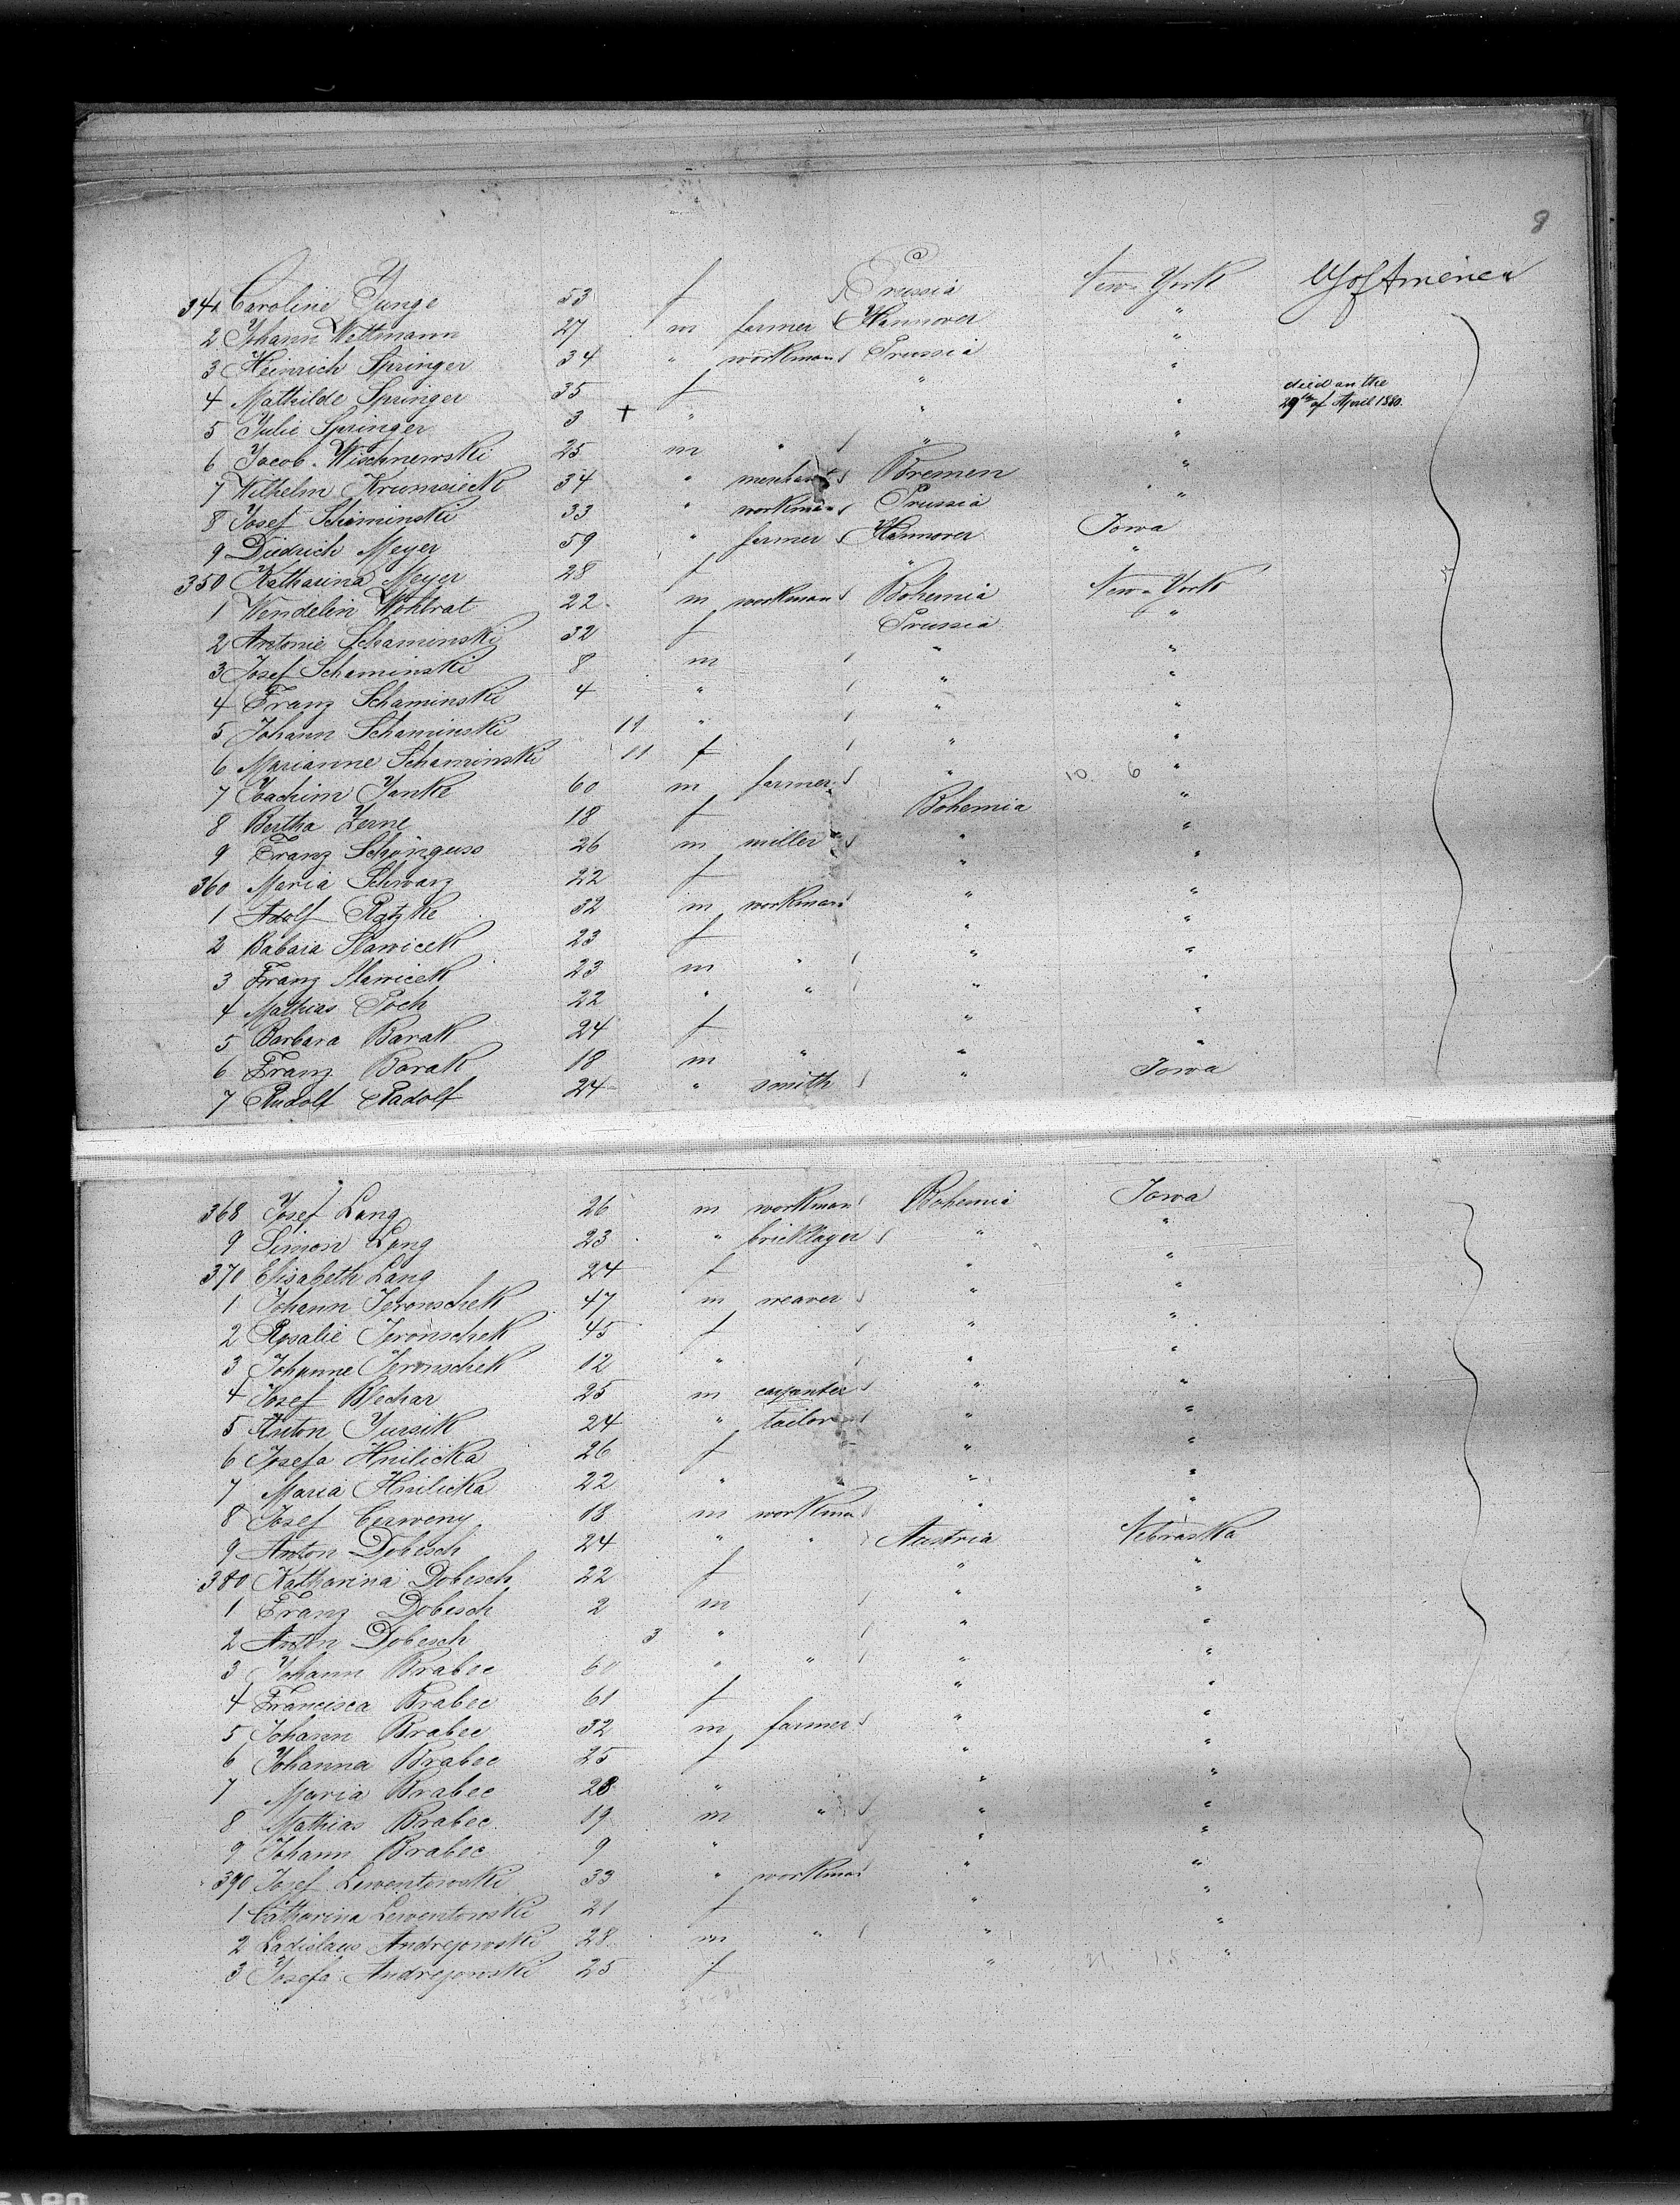 8
341 Caroline Junge 53 f Prussia New-York US of America
2 Johann Wettmann 27 m farmer Hannover "
3 Heinrich Springer 34 " workman Prussia "
4 Mathilde Springer 35 f " "
5 Julie Springer 3 + " " " died on the 29th of April 1880.
6 Jacob Wischnewski 25 m " " "
7 Wilhelm Krumsieck 34 " merchant Bremen "
8 Josef Schiminski 33 " workman Prussia "
9 Diedrich Meyer 59 " farmer Hannover Iowa
350 Katharina Meyer 28 f " "
1 Wendelin Wohlrat 22 m workman Bohemia New-York
2 Antonie Schaminski 32 f Prussia "
3 Josef Schaminski 8 m " "
4 Franz Schaminski 4 " " "
5 Johann Schaminski 11 " " "
6 Marianne Schaminski 11 f " "
7 Joachim Janke 60 m farmer " 10 6 "
8 Bertha Zerne 18 f Bohemia "
9 Franz Schönguss 26 m miller " "
360 Maria Schwarz 22 f " "
1 Adolf Ratzke 32 m workman " "
2 Babara Slawicek 23 f " "
3 Franz Slawicek 23 m " " "
4 Mathias Poch 22 " " " "
5 Barbara Barak 24 f " "
6 Franz Barak 18 m " " "
7 Rudolf Radolf 24 " smith " Iowa
368 Josef Lang 26 m workman Bohemia Iowa
9 Simon Lang 23 " bricklayer " "
370 Elisabeth Lang 24 f " "
1 Johann Jeronschek 47 m weaver " "
2 Rosalie Jeronschek 45 f " "
3 Johanne Jeronschek 12 " " "
4 Josef Blechar 25 m carpenter " "
5 Anton Jursik 24 " tailor " "
6 Josefa Hnilicka 26 f " "
7 Maria Hnilicka 22 " " "
8 Josef Cerweny 18 m workman " "
9 Anton Dobesch 24 " " Austria Nebraska
380 Katharina Dobesch 22 f " "
1 Franz Dobesch 2 m " "
2 Anton Dobesch 3 " " "
3 Johann Brabec 60 " " " "
4 Francisca Brabec 61 f " "
5 Johann Brabec 32 m farmer " "
6 Johanna Brabec 25 f " "
7 Maria Brabec 28 " " "
8 Mathias Brabec 19 m " " "
9 Johann Brabec 9 " " "
390 Josef Lewentowski 33 " workman " "
1 Catharina Lewentowski 21 f " "
2 Ladislaus Andrejowski 28 m " " "
3 Josefa Andrejowski 25 f " "